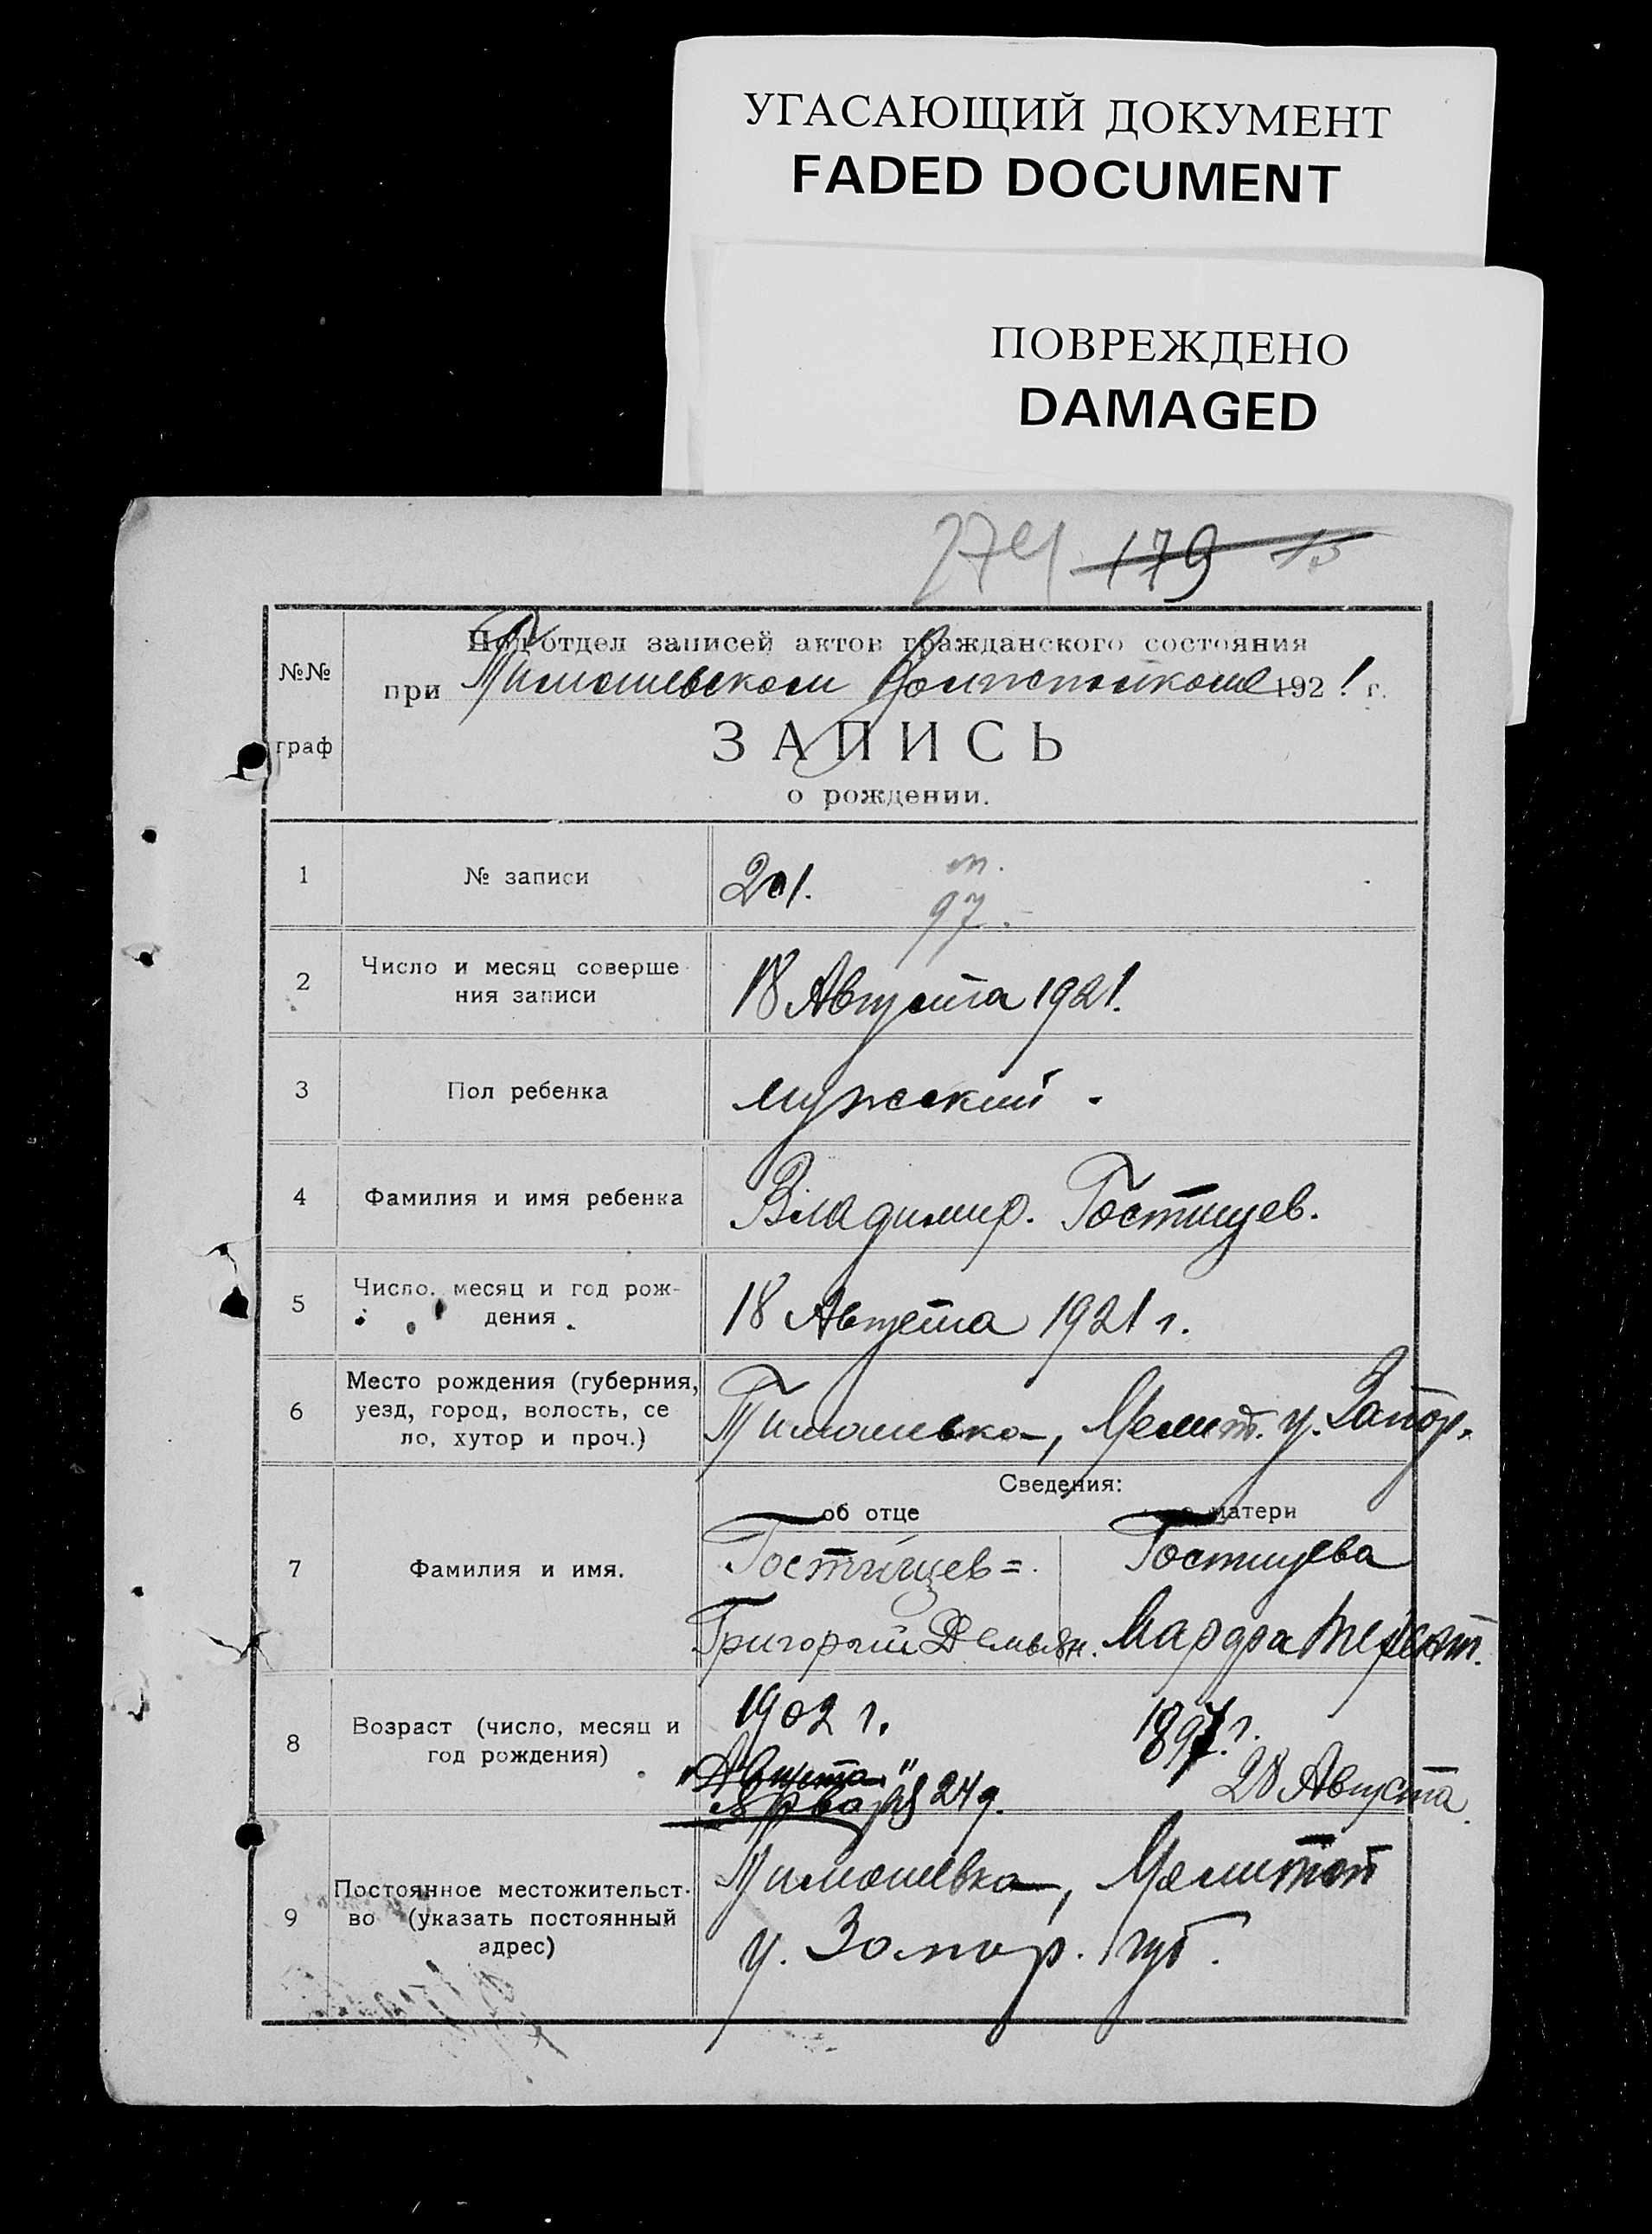 УГАСАЮЩИЙ ДОКУМЕНТ
FADED DOCUMENT
ПОВРЕЖДЕНО
DAMAGED
274 179 13
№№
граф
Подотдел записей актов гражданского состояния
при Тимошевском Волисполкоме 1921 г.
ЗАПИСЬ
о рождении.
1 № записи 201.
97.
2 Число и месяц соверше
ния записи
18 Августа 1921.
3 Пол ребенка мужский.
4 Фамилия и имя ребенка Владимир. Гостищев.
5 Число, месяц и год рож-
дения
18 Августа 1921 г.
6 Место рождения (губерния,
уезд, город, волость, се
ло, хутор и проч.)
Тимошевка, Мелит. у. Запор.
Сведения:
об отце о матери
7 Фамилия и имя.
Гостищев= Гостищева
Григорий Демьян. Марфа
8 Возраст (число, месяц и
год рождения)
1902 г. 1897 г.
Августа 24 д. 28 Августа
9 Постоянное местожительст-
во (указать постоянный
адрес)
Тимошевка, Мелитоп
у. Запор. губ.